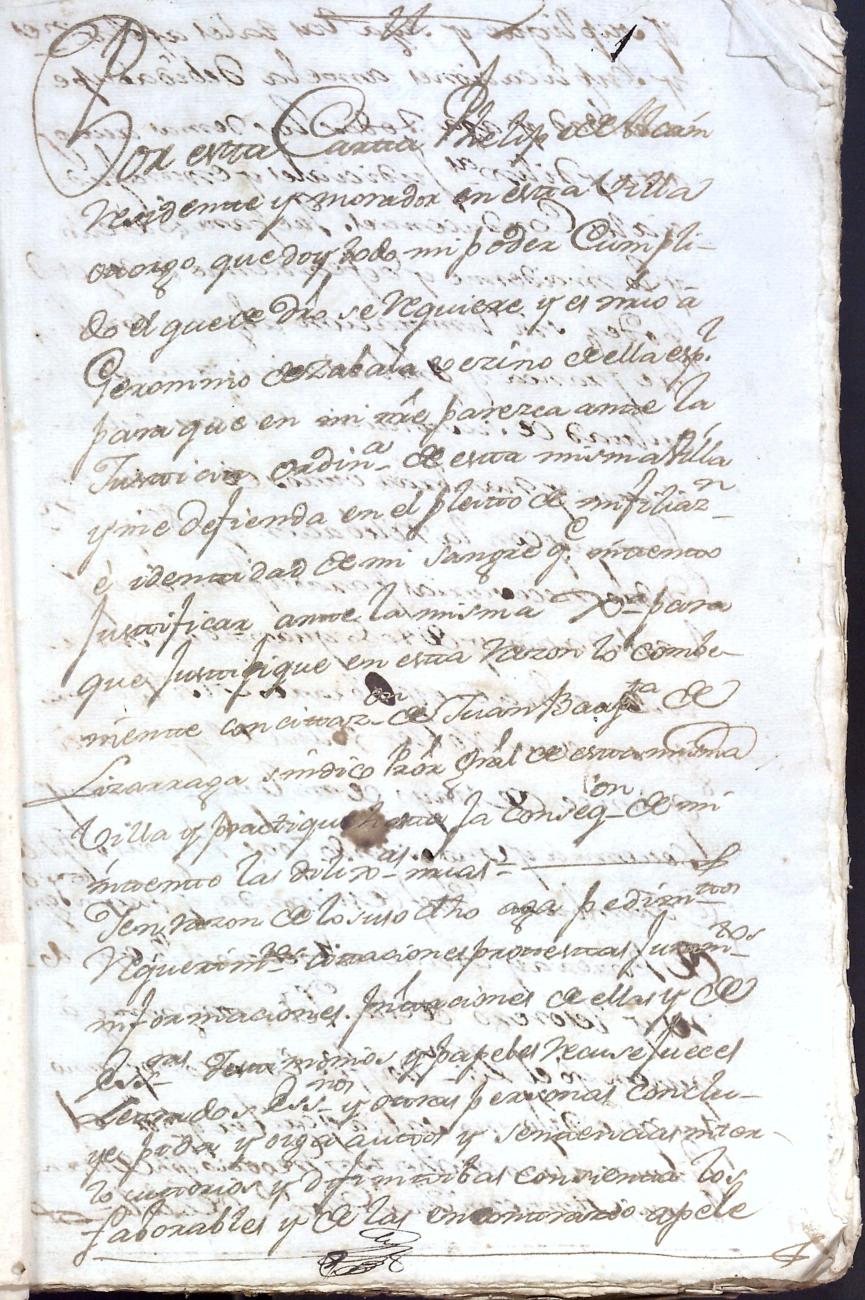 Por esta Carta Phelipe de
Residente y morador en esta Villa
otorgo, que doy todo mi poder Cumpli-
do el que de dro se requiere y es nezº á
Geronimo de Zabala vezino de ella espl
para que en mi nre parezca ante la
Justicia ordinª de esta misma Villa
y me defienda en el pleito de mi filiazn
é identidad de mi sangre qe intento
Justificar ante la misma para
que Justifique en esta razon lo combe-
niente con citazon de Juan Bapta de
Lizarraga sindico Prór Grál de esta misma
Villa y practique hasta la conseqion de mi
intento las dilixas
Y en razon de lo suso dho aga pedimtos
Requerimtos citaciones protestas Juramtos
informaciones de ellas y de
Essras Testimonios y papeles recuse Jueces
Letrados Essnos y otras personas conclu-
ye pida y oiga autos y sentencias inter-
locutorios y difinitibas consienta los
faborables y de las en contrario apele